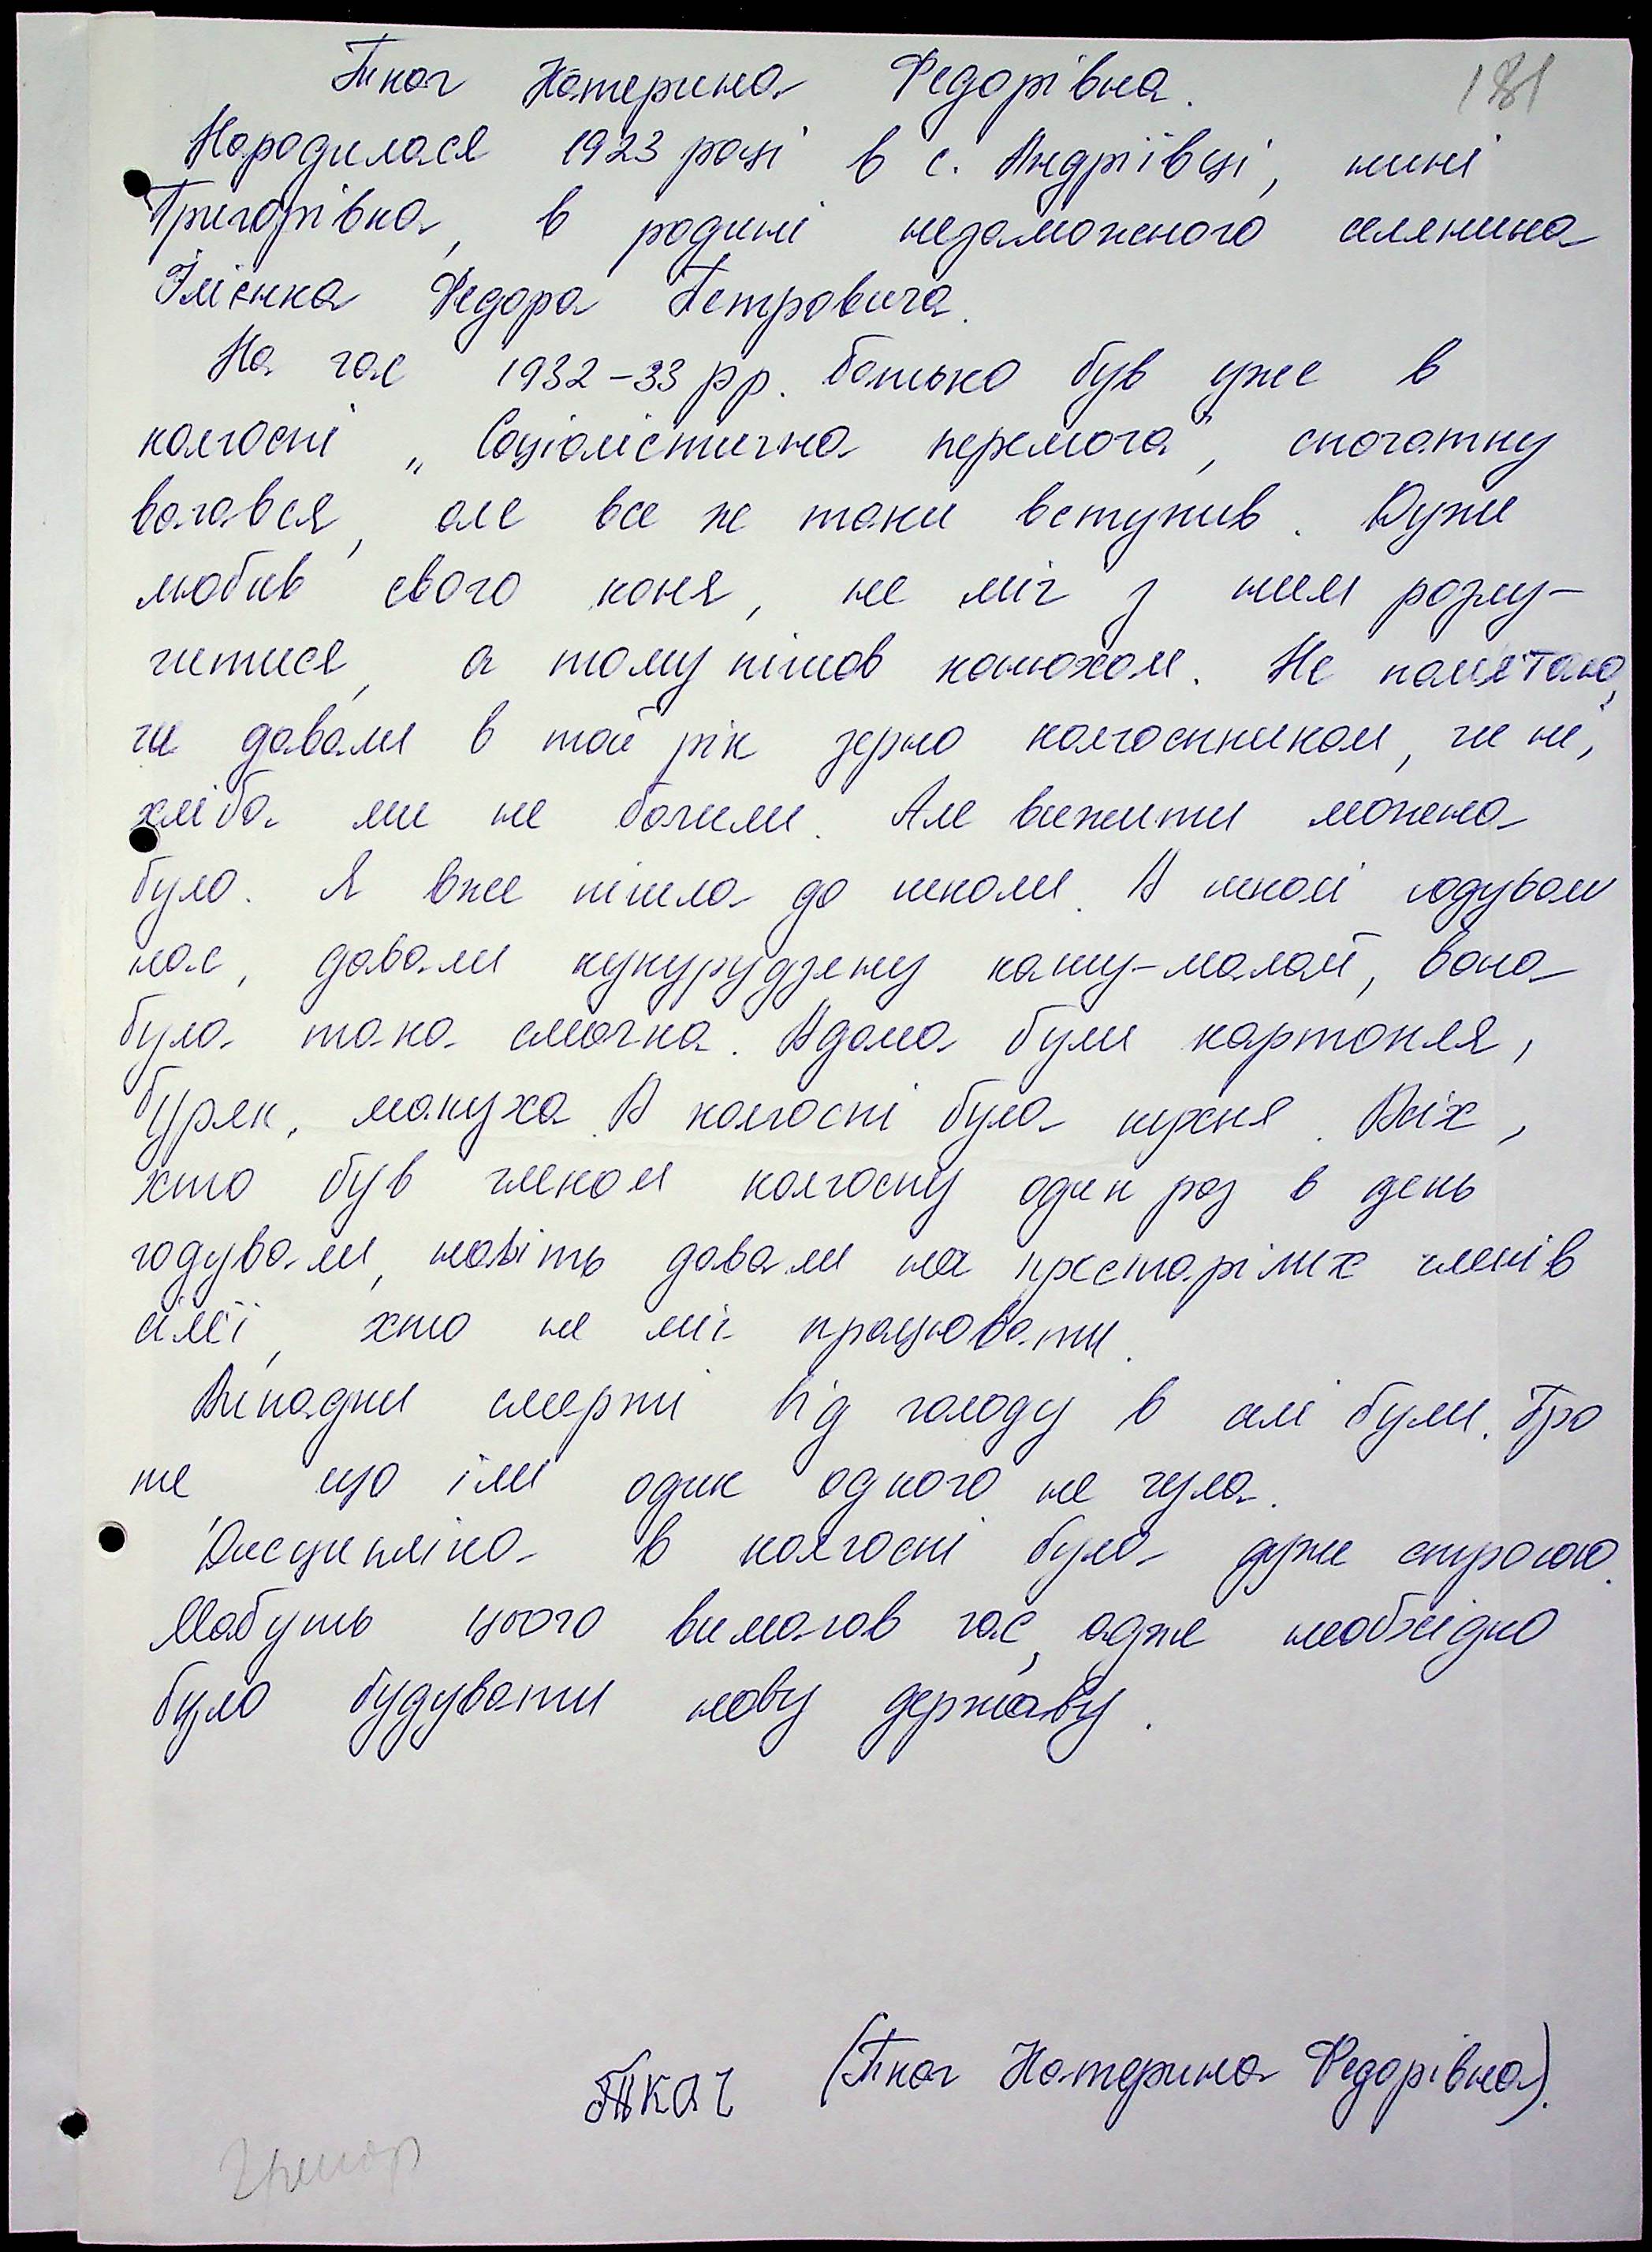 Ткач Катерина Федорівна.
181
Народилася 1923 році в с. Андріївці, нині
Григорівка, в родині незаможного селянина
Ілієнка Федора Петровича.
На час 1932-33 рр. батько був уже в
колгоспі „Соціалістична перемога", спочатку
вагався, але все ж таки вступив. Дуже
любив свого коня, не міг з ним розлу-
читися, а тому пішов конюхом. Не пам'ятаю,
чи давали в той рік зерно колгоспникам, чи ні,
хліба ми не бачили. Але вижити можна
було. Я вже пішла до школи. В школі годували
нас, давали кукурудзяну кашу-малай, вона
була така смачна. Вдома були картопля,
буряк, макуха. В колгоспі була кухня. Всіх,
хто був членом колгоспу один раз в день
годували, навіть давали на престарілих членів
сім'ї, хто не міг працювати.
Випадки смерті від голоду в селі були. Про
те що їли один одного не чула.
Дисципліна в колгоспі була дуже строгою.
Мабуть цього вимагав час, адже необхідно
було будувати нову державу.
Ткач (Ткач Катерина Федорівна).